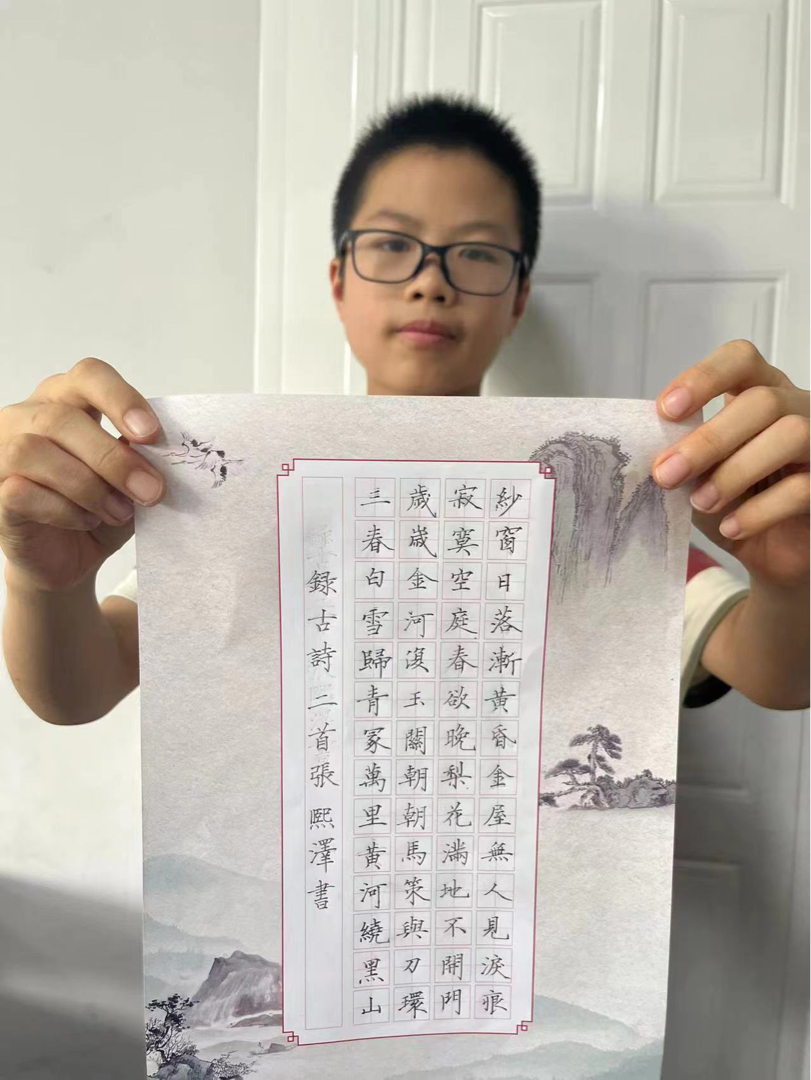 紗窗日落漸黃昏金屋無人見淚痕
寂寞空庭春欲晚梨花滿地不開門
歲歲金河復玉關朝朝馬策與刀環
三春白雪歸青冢萬里黃河繞黑山
錄古詩二首張熙澤書